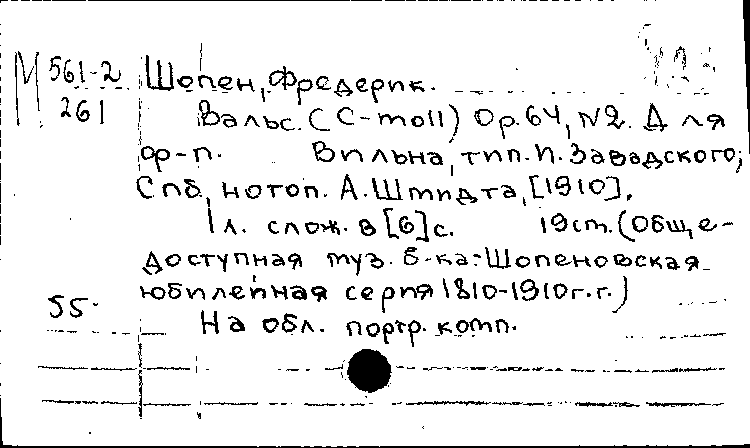 М 561-2 Шопен, Фредерик.
261 Вальс. (C-moll) Op. 64, №2. Для
ор-п. Вильна, тип. И. Завадского;
Спб, нотоп. А. Шмидта, [1910].
1 л. слож. в [6] с. 19 cm. (Обще-
доступная муз. б-ка: Шопеновская
юбилейная серия 1810-1910 г.г.)
55. На обл. портр. комп.